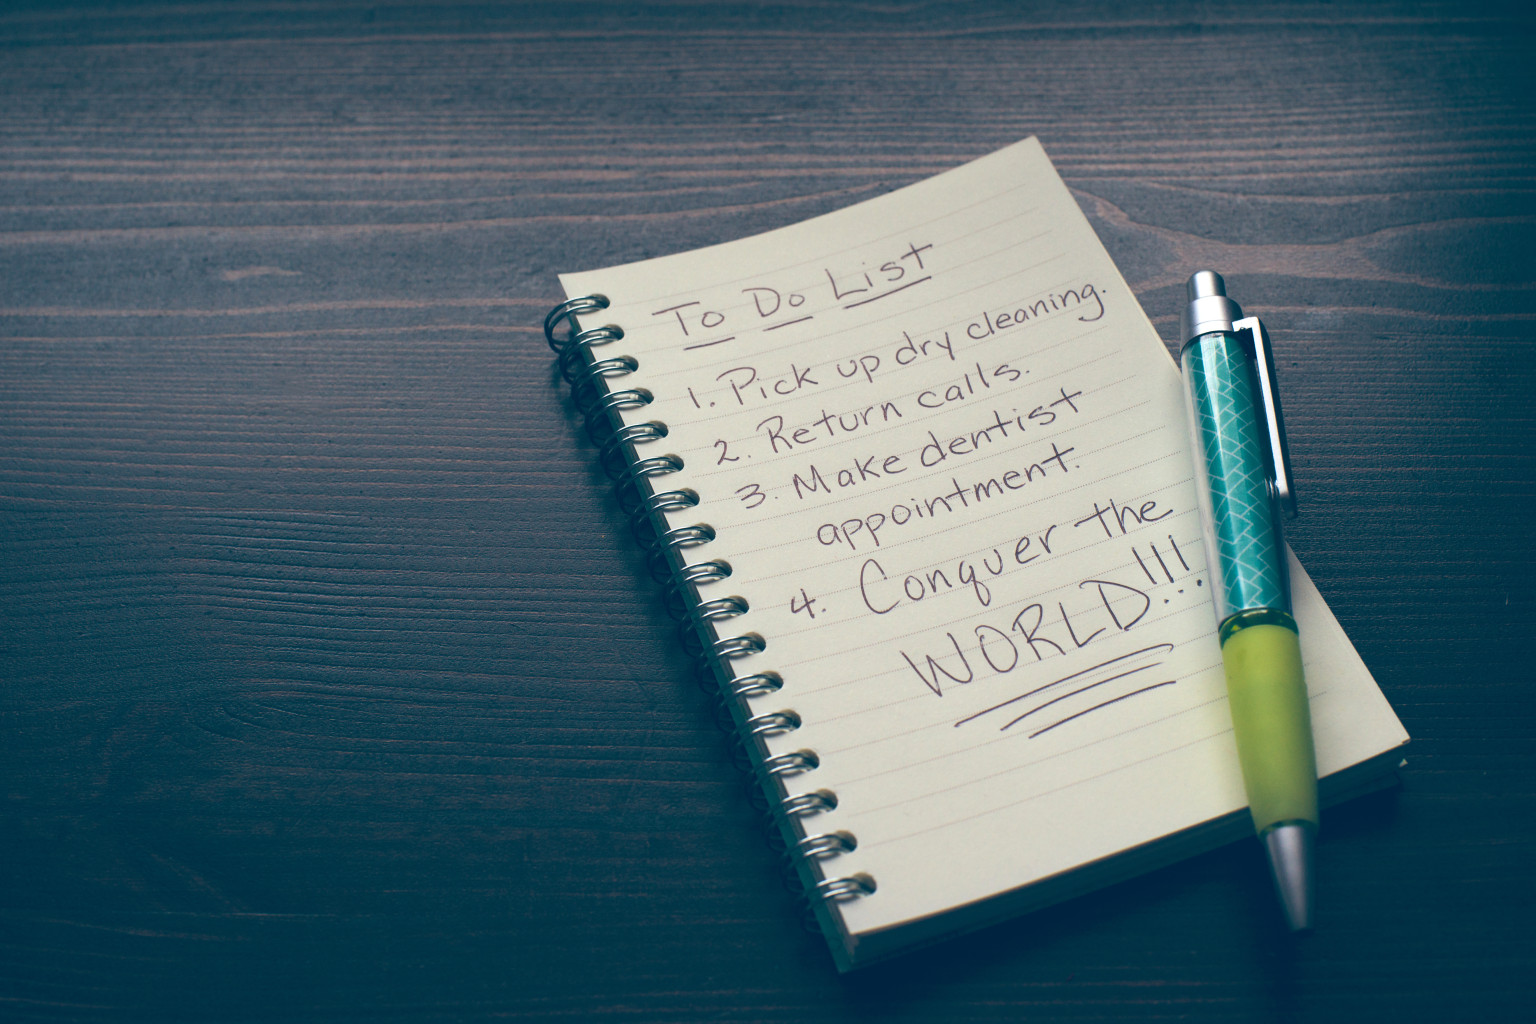 To Do List
1. Pick up dry cleaning.
2. Return calls.
3. Make dentist
appointment.
4. Conquer the
WORLD!!!